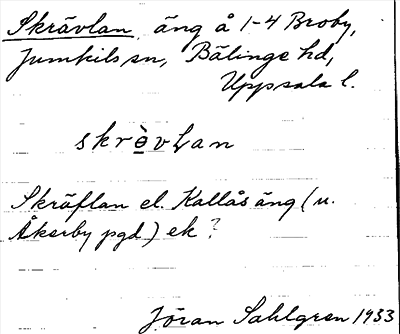 Skrävlan äng å 1-4 Broby,
Jumkils sn, Bälinge hd,
Uppsala l.
skrèvḷan
Skräflan el. Kallås äng (u.
Åkerby pgd) ek?
Jöran Sahlgren 1933